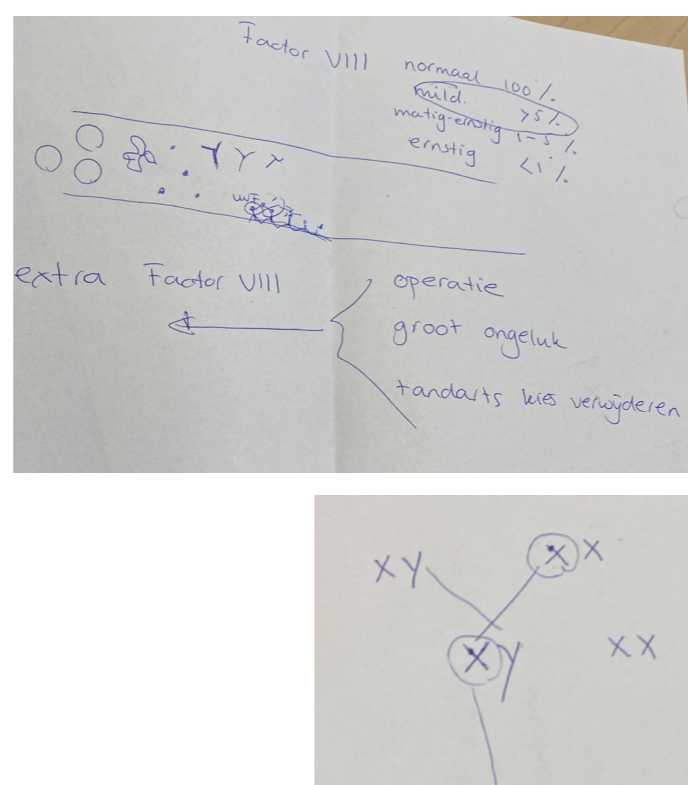 Factor VIII
normaal 100%
mild. >5%
matig-ernstig 1-5%
ernstig <1%
Y Y Y
vWF
extra Factor VIII
operatie
groot ongeluk
tandarts kies verwijderen
X Y
X X
X Y
X X